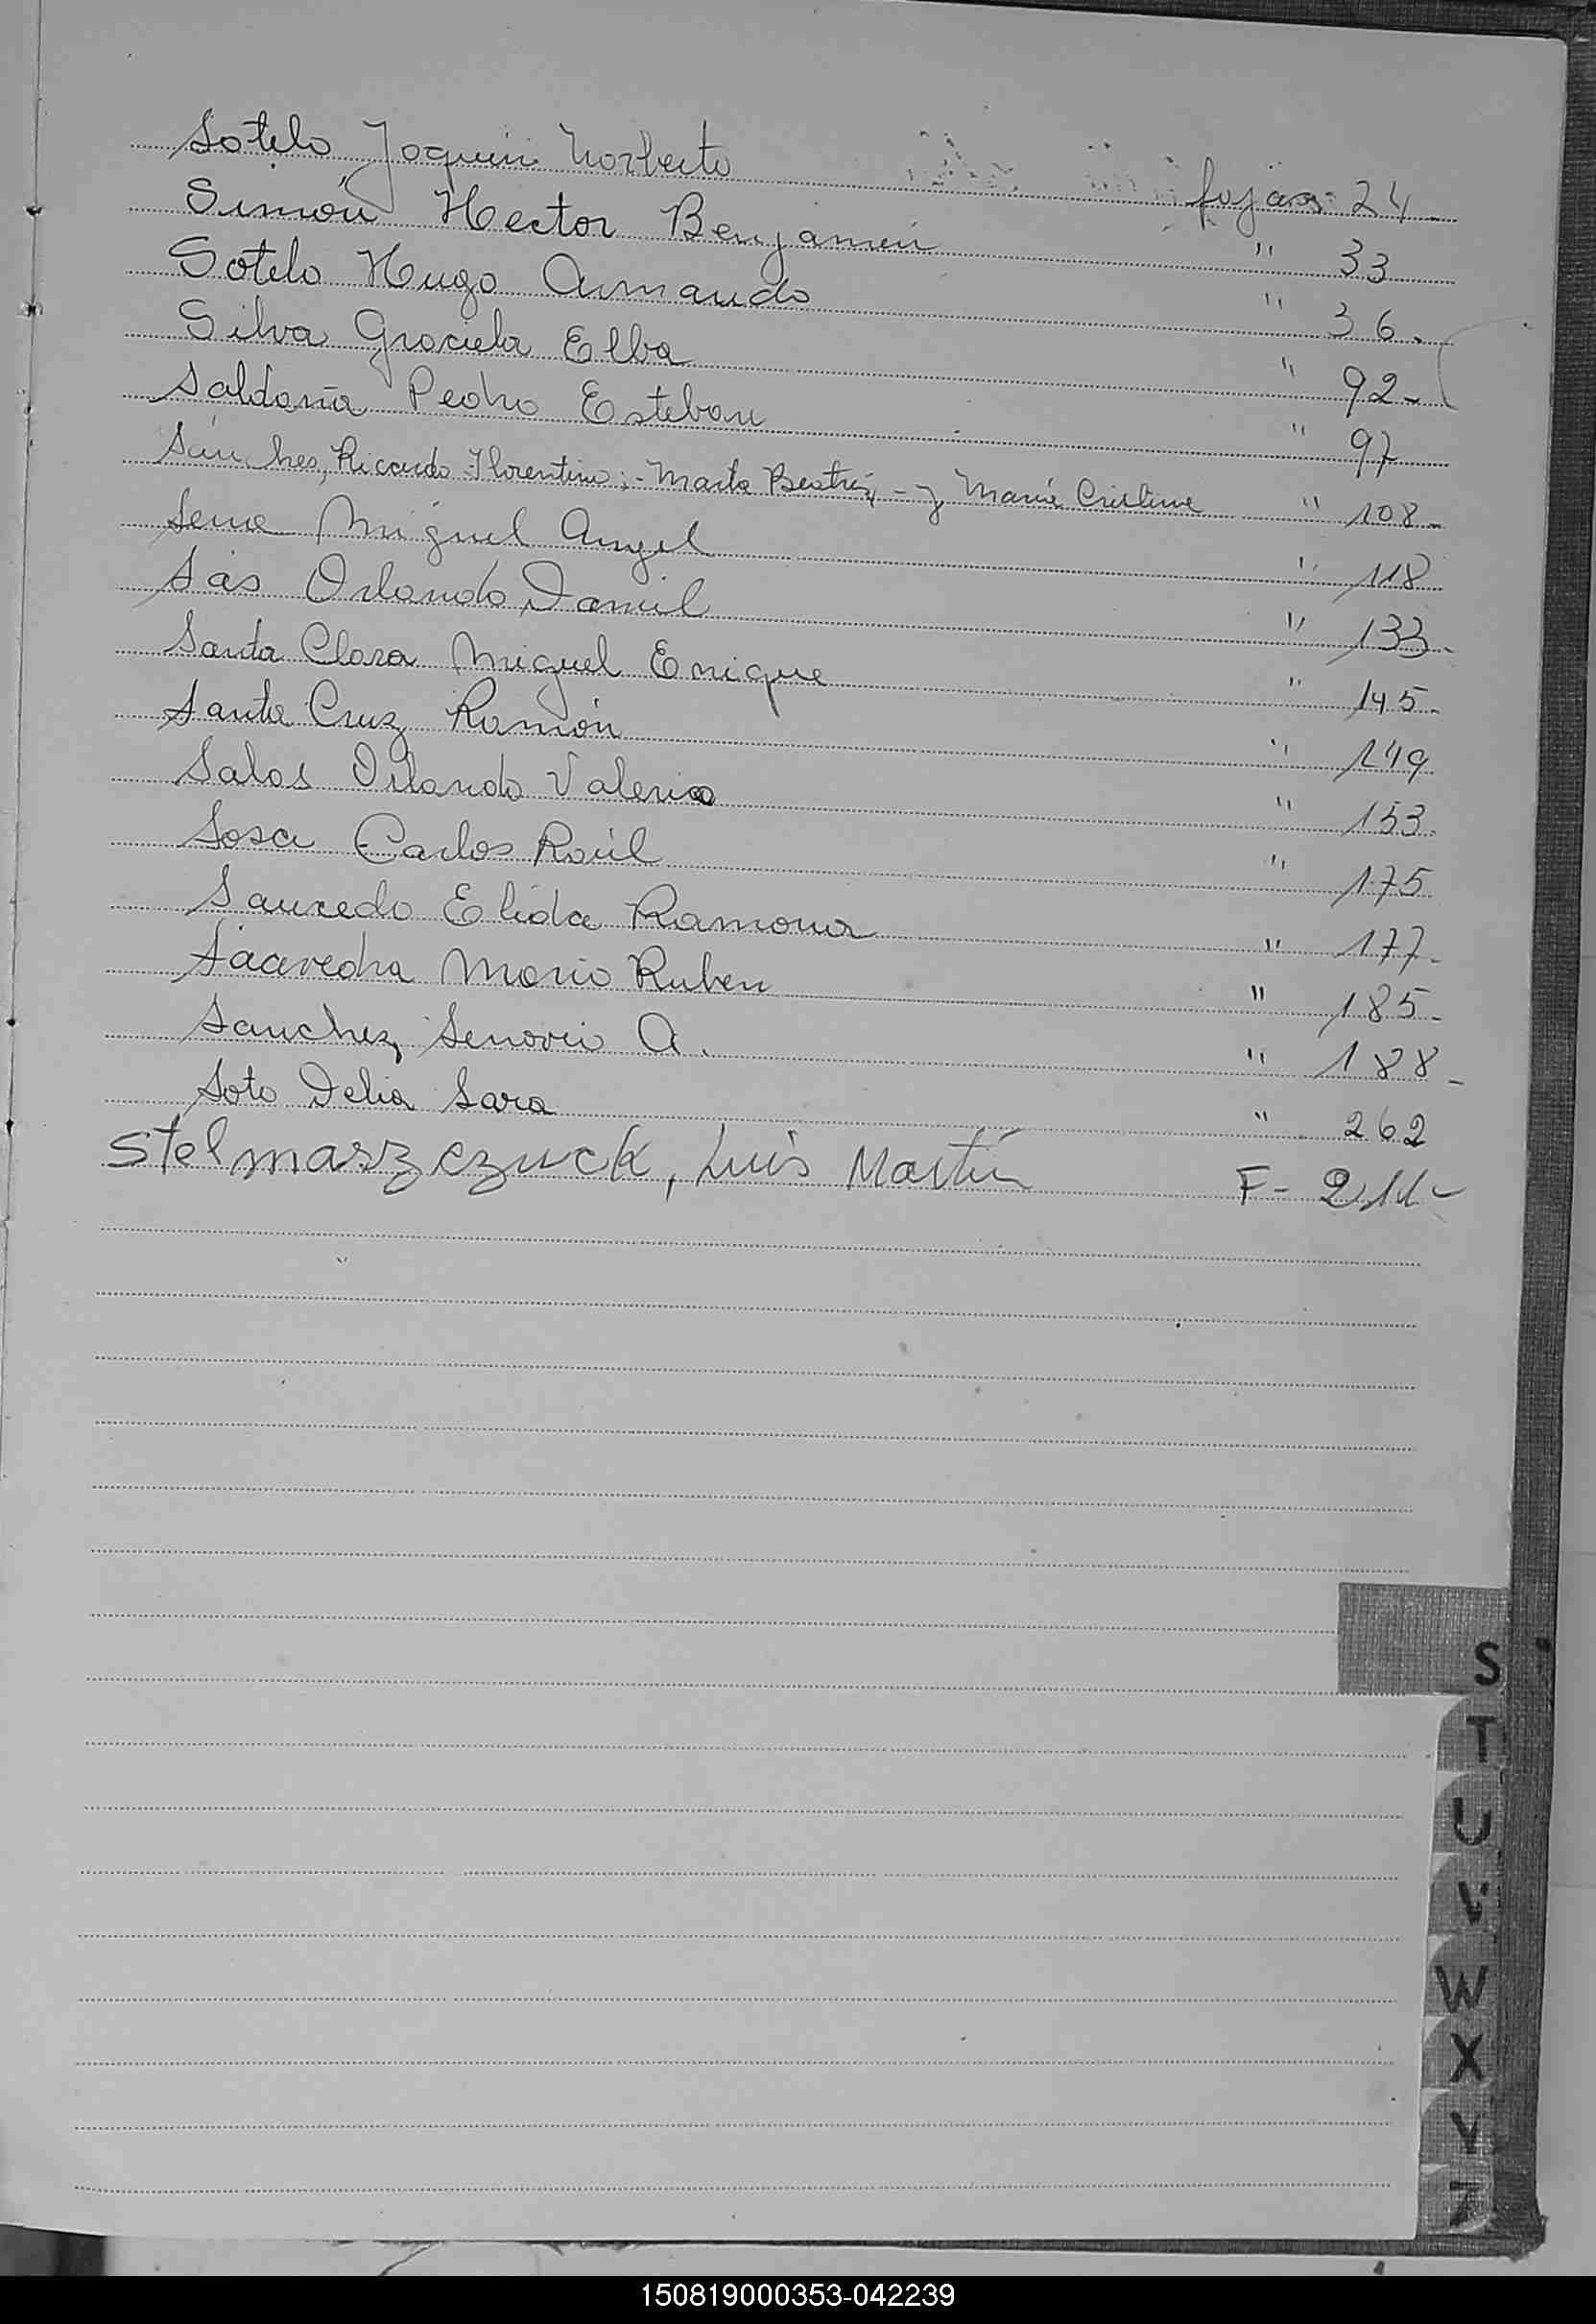 Sotelo Joquin Norberto fojas 24
Simón Hector Benjamin " 33
Sotelo Hugo Armando " 36.
Silva Graciela Elba " 92-
Saldaña Pedro Esteban " 97
Sánches, Ricardo Florentino;- Marta Beatriz, - y María Cristina " 108-
Sena Miguel Angel " 118
Sas Orlando Daniel " 133-
Santa Clara Miguel Enrique " 145-
Santa Cruz Ramón " 149
Salas Orlando Valerio " 153.
Sosa Carlos Raúl " 175
Saucedo Elida Ramona " 177-
Saavedra Mario Ruben " 185-
Sanchez, Senovio A. " 188-
Soto Delia Sara " 262
Stelmaszczuck, Luis Martín F- 211-
S
T
U
V
W
X
Y
Z
150819000353-042239